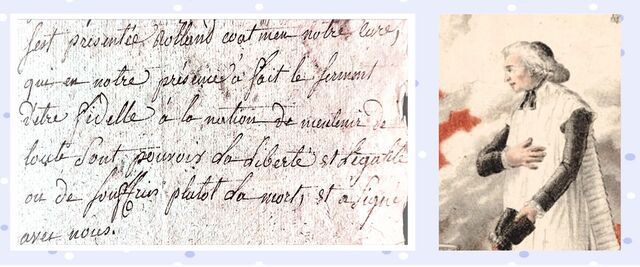 sest présentée Rolland coatmen notre curé,
qui en notre présence à fait le serment
d'être fidelle à la nation de meintenir de
toute sont pouvoir La Liberté et L'égalité
ou de souffrir plutot La mort, et à signé
avec nous.